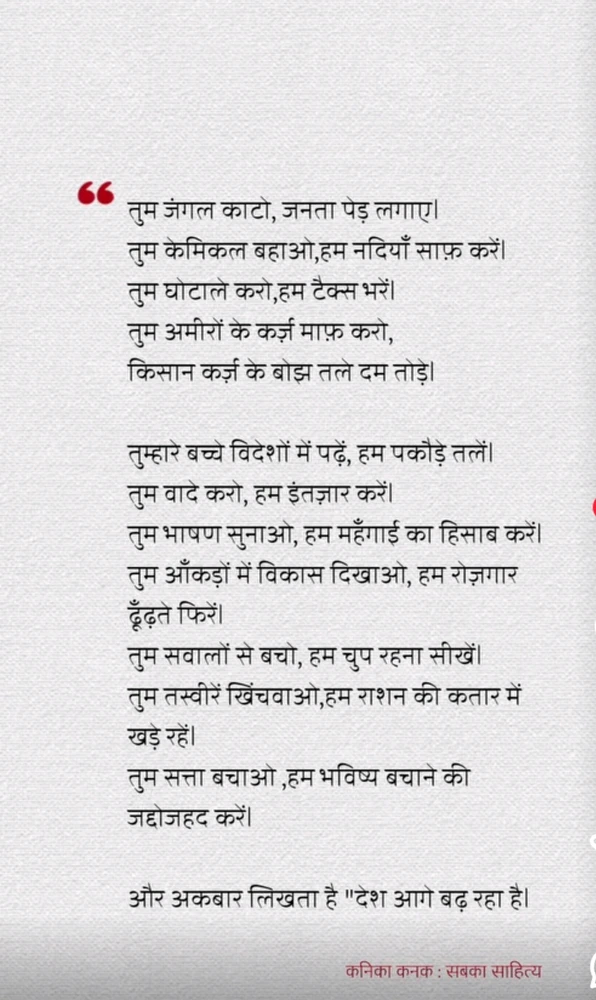 “
तुम जंगल काटो, जनता पेड़ लगाए|
तुम केमिकल बहाओ,हम नदियाँ साफ़ करें|
तुम घोटाले करो,हम टैक्स भरें|
तुम अमीरों के कर्ज़ माफ़ करो,
किसान कर्ज़ के बोझ तले दम तोड़े|
तुम्हारे बच्चे विदेशों में पढ़ें, हम पकौड़े तलें|
तुम वादे करो, हम इंतज़ार करें|
तुम भाषण सुनाओ, हम महँगाई का हिसाब करें|
तुम आँकड़ों में विकास दिखाओ, हम रोज़गार
ढूँढ़ते फिरें|
तुम सवालों से बचो, हम चुप रहना सीखें|
तुम तस्वीरें खिंचवाओ,हम राशन की कतार में
खड़े रहें|
तुम सत्ता बचाओ ,हम भविष्य बचाने की
जद्दोजहद करें|
और अकबार लिखता है "देश आगे बढ़ रहा है|
कनिका कनक : सबका साहित्य